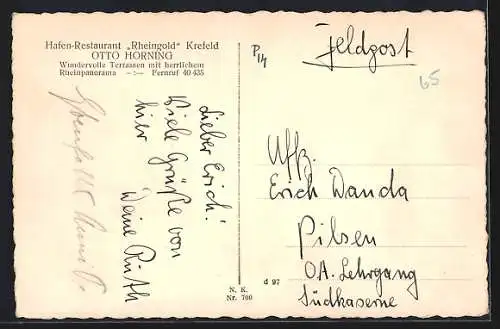 Hafen-Restaurant „Rheingold“ Krefeld
OTTO HORNING
Wundervolle Terrassen mit herrlichem
Rheinpanorama -:- Fernruf 40 435
Lieber Erich!
Viele Grüße von
hier Deine Ruth
Ebenfalls
N. K.
Nr. 700
P14
Feldpost
65
Uffz.
Erich Wanda
Pilsen
OA. Lehrgang
Südkaserne
d 97